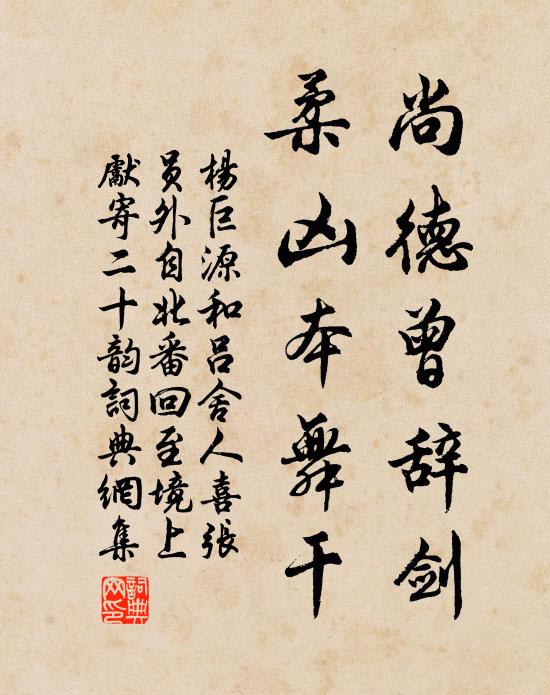 尚德曾辞剑
柔凶本舞干
楊巨源和吕舍人喜張
员外自北番回至境上
獻寄二十韵詞典網集
詞典网印